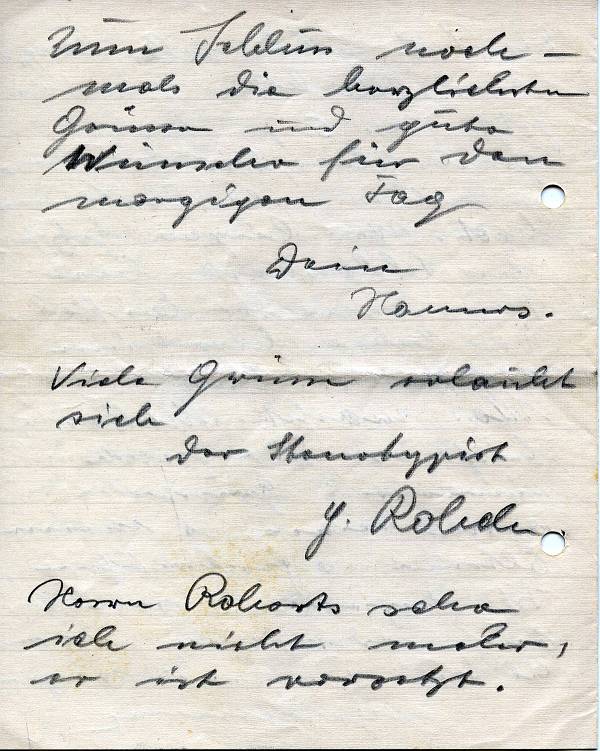 Zum Schluss noch-
mals die herzlichsten
Grüsse und gute
Wünsche für den
morgigen Tag
Dein
Hannes.
Viele Grüsse erlaubt
sich
der Stenotypist
Y. Rohde.
Herrn Roberts sehe
ich nicht mehr,
er ist versetzt.